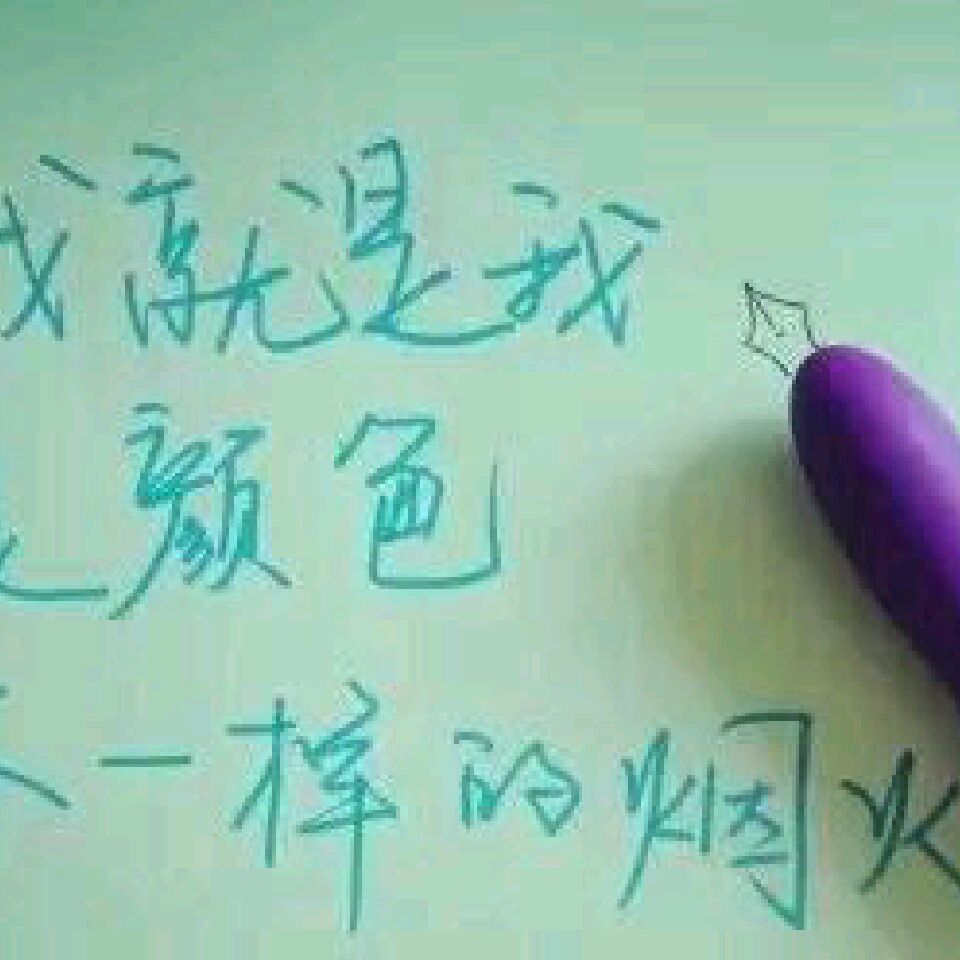 我就是我
颜色
不一样的烟火